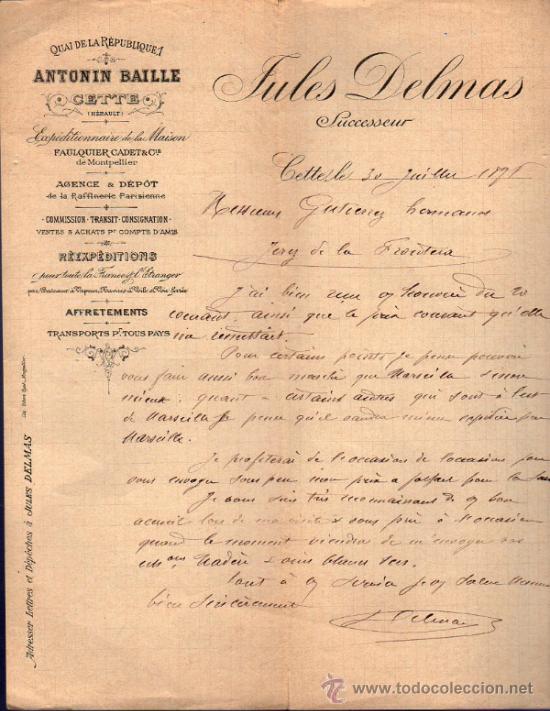 QUAI DE LA RÉPUBLIQUE, 1
ANTONIN BAILLE
CETTE
(HÉRAULT)
Expéditionnaire de la Maison
FAULQUIER CADET & Cie
de Montpellier
AGENCE & DÉPÔT
de la Raffinerie Parisienne
COMMISSION - TRANSIT - CONSIGNATION
VENTES & ACHATS Pr COMPTE D'AMIS
RÉEXPÉDITIONS
pour toute la France & l'Étranger
par Bateaux à Vapeur, Navires à Voile & Voie ferrée
AFFRETEMENTS
TRANSPORTS Pr TOUS PAYS
Adresser Lettres et Dépêches à JULES DELMAS
Jules Delmas
Successeur
Cette, le 30 Juillet
Messieurs Gutierrez hermanos
Jerez de la Frontera
J'ai bien du 20
courant, ainsi que le prix courant qu'elle
m'a remettait.
Pour certains points je pense pouvoir
vous faire aussi bon marché que Marseille sinon
mieux; quant à certains autres qui sont à l'est
de Marseille je pense qu'il vaudra mieux expédier par
Marseille.
Je profiterai de l'occasion de l'occasion pour
vous envoyer sous peu mon prix à forfait pour la
Je vous suis très reconnaissant du bon
accueil lors de ma visite & vous prie à l'occasion
quand le moment viendra de m'envoyer vos
Madère & vins blancs secs.
tout à
bien sincèrement
J Delmas
© www.todocoleccion.net